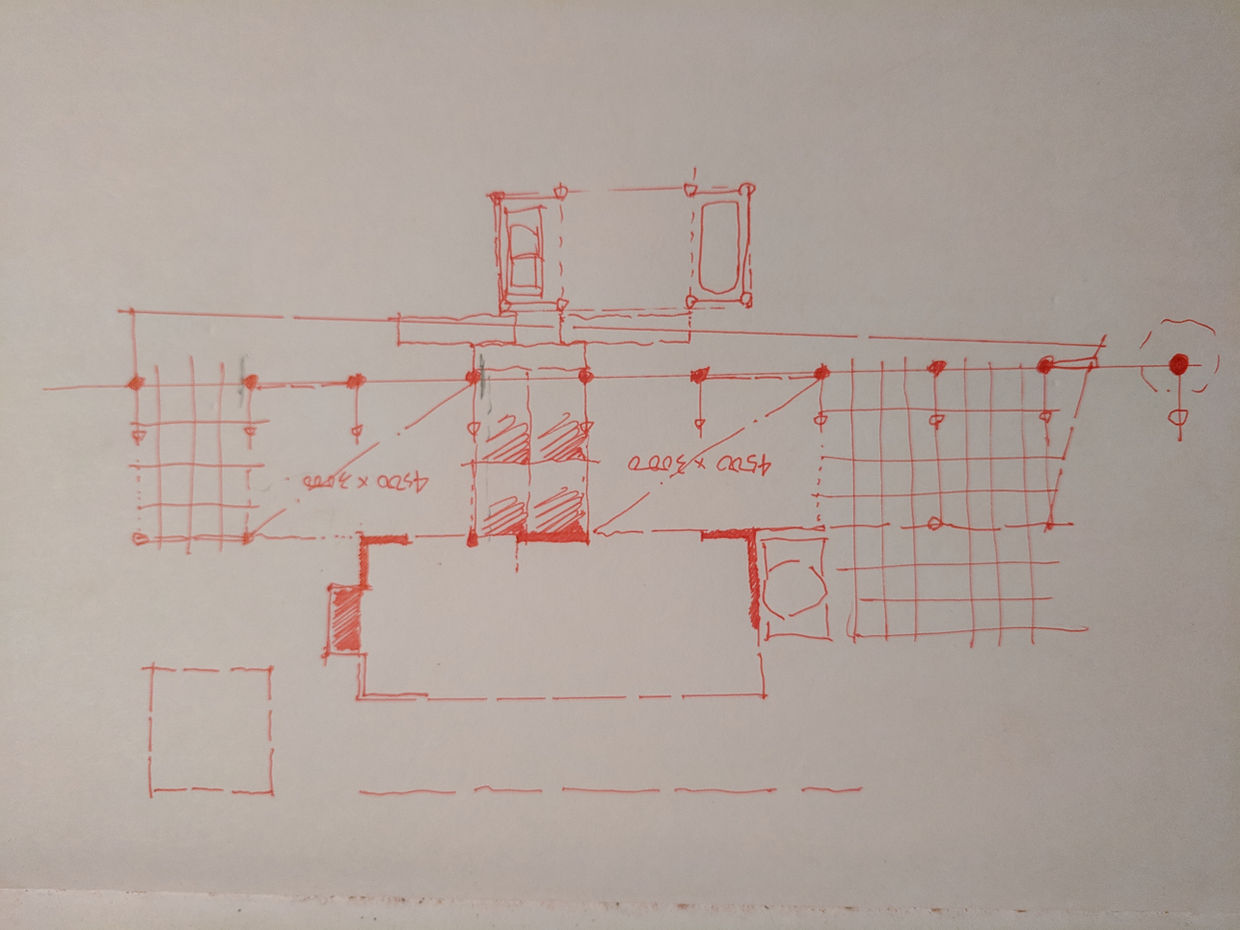 4500 x 3000
4500 x 3000